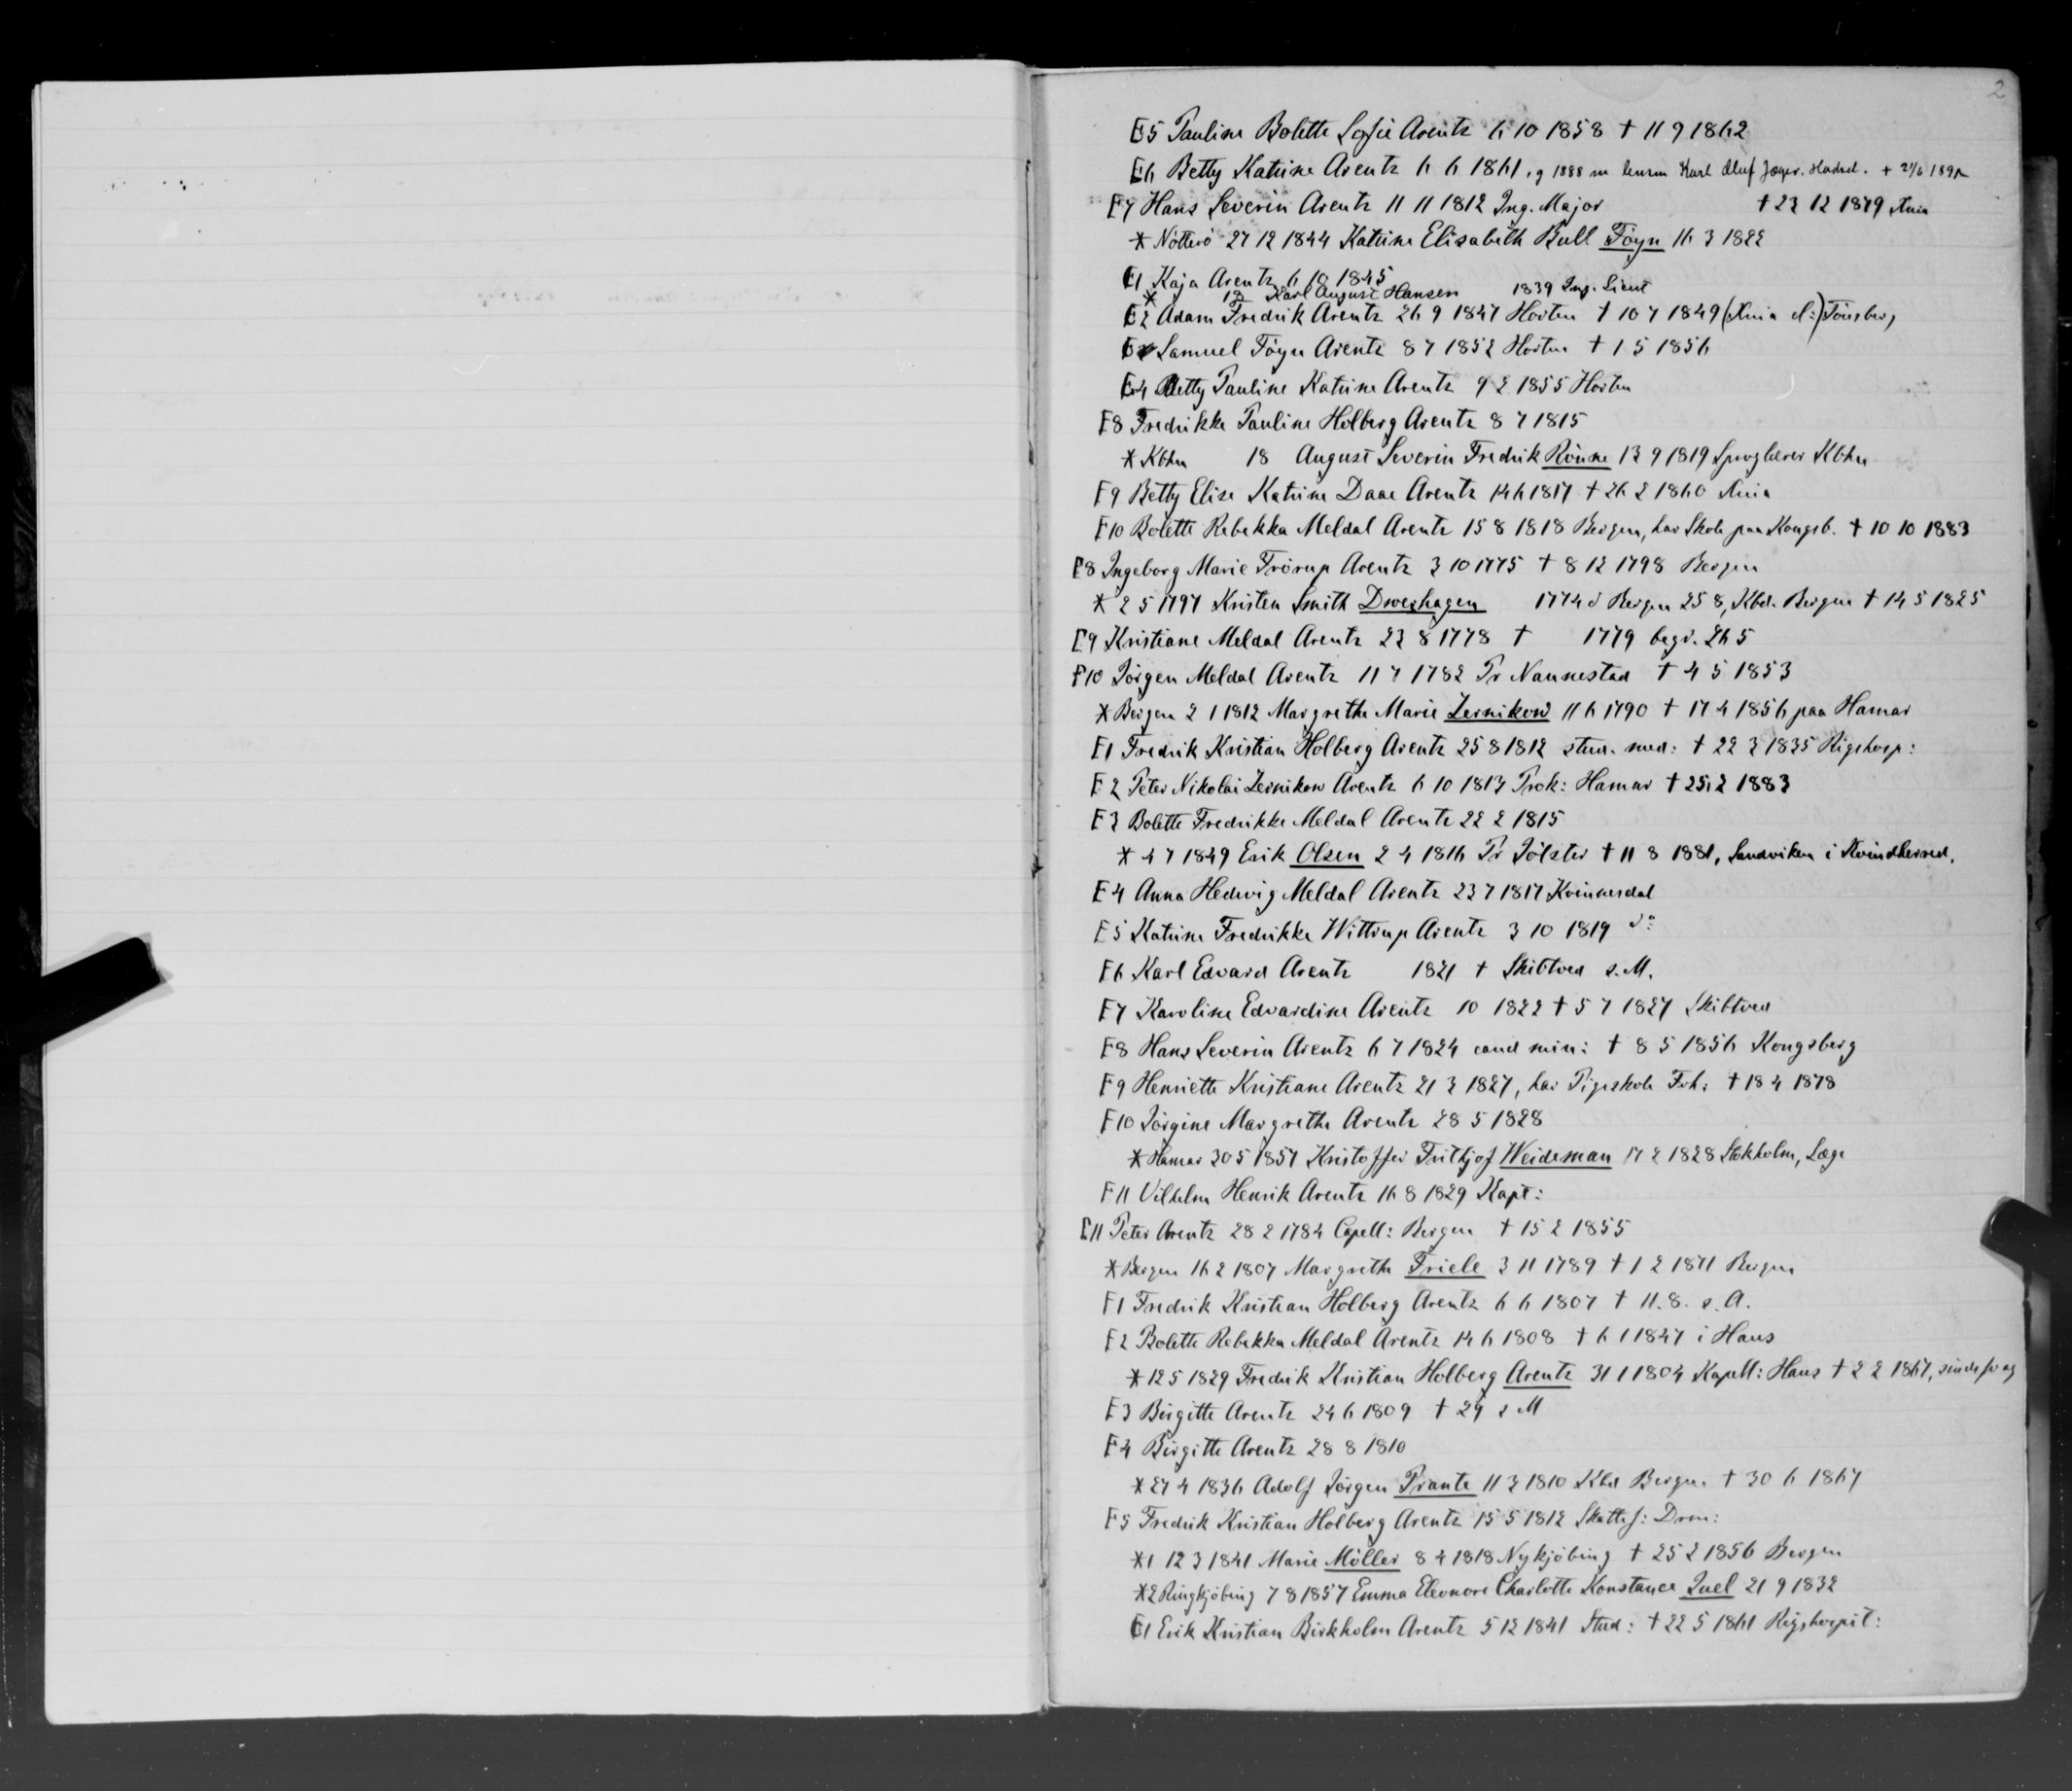 2
E5 Pauline Bolette Sofie Arentz 6 10 1858 † 11 9 1862
E6 Betty Katrine Arentz 6 6 1861, g 1888 m Karl Oluf Jæger.
F7 Hans Severin Arentz 11 11 1812 Ing. Major † 23 12 1879 Xnia
* Nötterö 27 12 1844 Katrine Elisabeth Bull Föyn 16 3 1822
E1 Kaja Arentz 6 10 1845
* 18 Karl August Hansen 1839 Ing. Lieut
E2 Adam Fredrik Arentz 26 9 1847 Horten † 10 7 1849 (Xnia el:) Tönsberg
E3 Samuel Föyn Arentz 8 7 1852 Horten † 1 5 1856
E4 Betty Pauline Katrine Arentz 9 2 1855 Horten
F8 Fredrikke Pauline Holberg Arentz 8 7 1815
* Kbhn 18 August Severin Fredrik Rönne 13 9 1819 Sproglærer Kbhn
F9 Betty Elise Katrine Daae Arentz 14 6 1817 † 26 2 1860 Xnia
F10 Bolette Rebekka Meldal Arentz 15 8 1818 Bergen, har Skole paa Kongsb. † 10 10 1883
E8 Ingeborg Marie Trörup Arentz 3 10 1775 † 8 12 1798 Bergen
* 2 5 1797 Kristen Smith Dwerhagen 1774 d Bergen 25 8, Kbd. Bergen † 14 5 1825
E9 Kristiane Meldal Arentz 23 8 1778 † 1779 begr. 26 5
E10 Jörgen Meldal Arentz 11 7 1782 Pr Nannestad † 4 5 1853
* Bergen 2 1 1812 Margrethe Marie Zernikow 11 6 1790 † 17 4 1856 paa Hamar
F1 Fredrik Kristian Holberg Arentz 25 8 1812 stud. med: † 22 3 1835 Rigshosp:
F2 Peter Nikolai Zernikow Arentz 6 10 1813 Prok: Hamar † 25 2 1883
F3 Bolette Fredrikke Meldal Arentz 22 2 1815
* 4 7 1849 Erik Olsen 2 4 1816 Pr Jölster † 11 8 1881, Sandviken i Kvindherred.
F4 Anna Hedwig Meldal Arentz 23 7 1817 Kvinnesdal
F5 Katrine Fredrikke Wittrup Arentz 3 10 1819 do:
F6 Karl Edvard Arentz 1821 † Skibtved s.M.
F7 Karoline Edvardine Arentz 10 1822 † 5 7 1827 Skibtved
F8 Hans Severin Arentz 6 7 1824 cand min: † 8 5 1856 Kongsberg
F9 Henriette Kristiane Arentz 21 3 1827, har Pigeskole Frh: † 18 4 1878
F10 Jörgine Margrethe Arentz 28 5 1828
* Hamar 30 5 1857 Kristoffer Frithjof Weideman 17 2 1828 Stokholm, Læge
F11 Vilhelm Henrik Arentz 16 8 1829 Kapt:
E11 Peter Arentz 28 2 1784 Capell: Bergen † 15 2 1855
* Bergen 16 2 1807 Margrethe Friele 3 11 1789 † 1 2 1871 Bergen
F1 Fredrik Kristian Holberg Arentz 6 6 1807 † 11. 8. s. A.
F2 Bolette Rebekka Meldal Arentz 14 6 1808 † 6 1 1847 i Haus
* 12 5 1829 Fredrik Kristian Holberg Arentz 31 1 1804 Kapell: Haus † 2 2 1867,
F3 Birgitte Arentz 24 6 1809 † 29 s M
F4 Birgitte Arentz 28 8 1810
* 27 4 1836 Adolf Jörgen Prante 11 3 1810 Kbd Bergen. † 30 6 1867
F5 Fredrik Kristian Holberg Arentz 15 5 1812 Skattef: Drm:
*1 12 3 1841 Marie Möller 8 4 1818 Nykjöbing † 25 2 1856 Bergen
*2 Ringkjöbing 7 8 1857 Emma Eleonore Charlotte Konstance Juel 21 9 1832
E1 Erik Kristian Birkholm Arentz 5 12 1841 Stud: † 22 5 1861 Rigshospit: